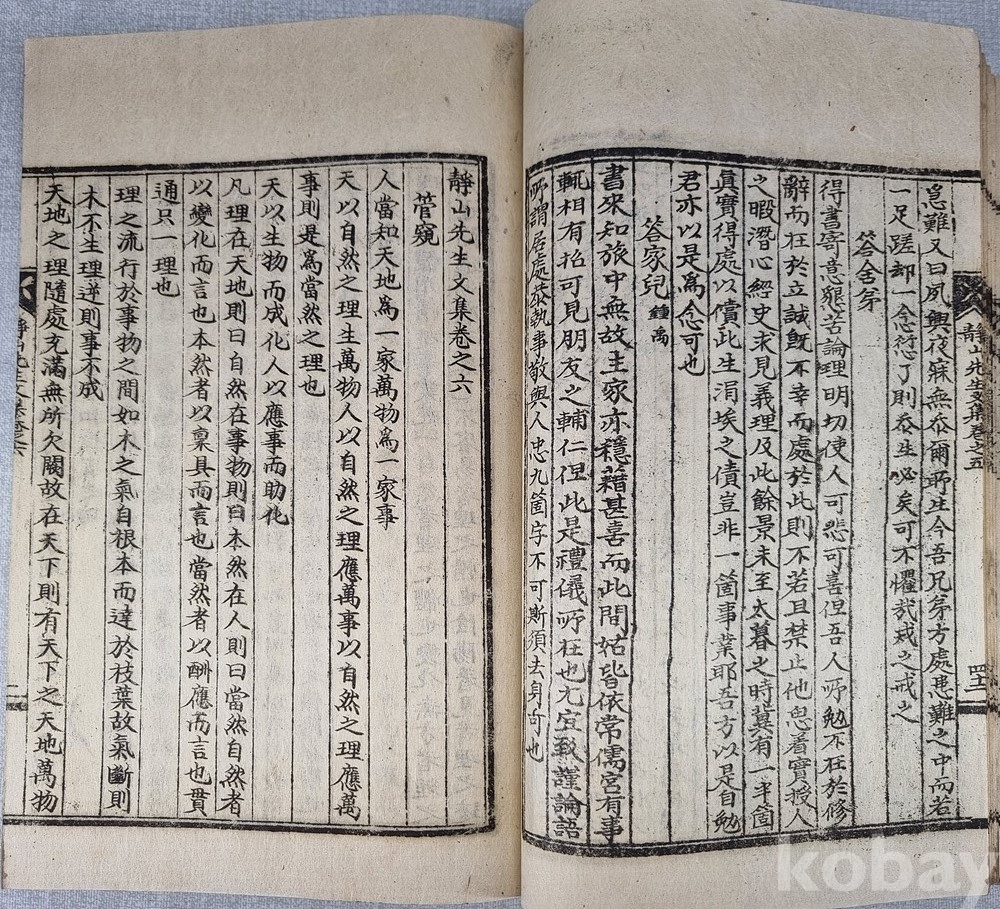 急難又曰夙興夜寐無忝爾所生今吾兄弟方處患難之中而若
一足蹉却一念愆了則忝生必矣可不懼哉戒之戒之
答舍弟
得書寄意懇苦論理明切使人可悲可喜但吾人所勉不在於修
辭而在於立誠旣不幸而處於此則不若且禁止他思着實授人
之暇潛心經史求見義理及此餘景未至太暮之時冀有一半箇
眞實得處以償此生涓埃之債豈非一箇事業耶吾方以是自勉
君亦以是爲念可也
答家兒 鍾禹
書來知旅中無故主家亦穩藉甚喜而此間姑皆依常儒宮有事
輒相有招可見朋友之輔仁但此是禮儀所在也尤宜致謹論語
所謂居處恭執事敬與人忠九箇字不可斯須去身可也
靜山先生文集卷之五
四十二
靜山先生文集卷之六
管窺
人當知天地爲一家萬物爲一家事
天以自然之理生萬物人以自然之理應萬事以自然之理應萬
事則是爲當然之理也
天以生物而成化人以應事而助化
凡理在天地則曰自然在事物則曰本然在人則曰當然自然者
以變化而言也本然者以稟具而言也當然者以酬應而言也貫
通只一理也
理之流行於事物之間如木之氣自根本而達於枝葉故氣斷則
木不生理逆則事不成
天地之理隨處充滿無所欠闕故在天下則有天下之天地萬物
一
kobay